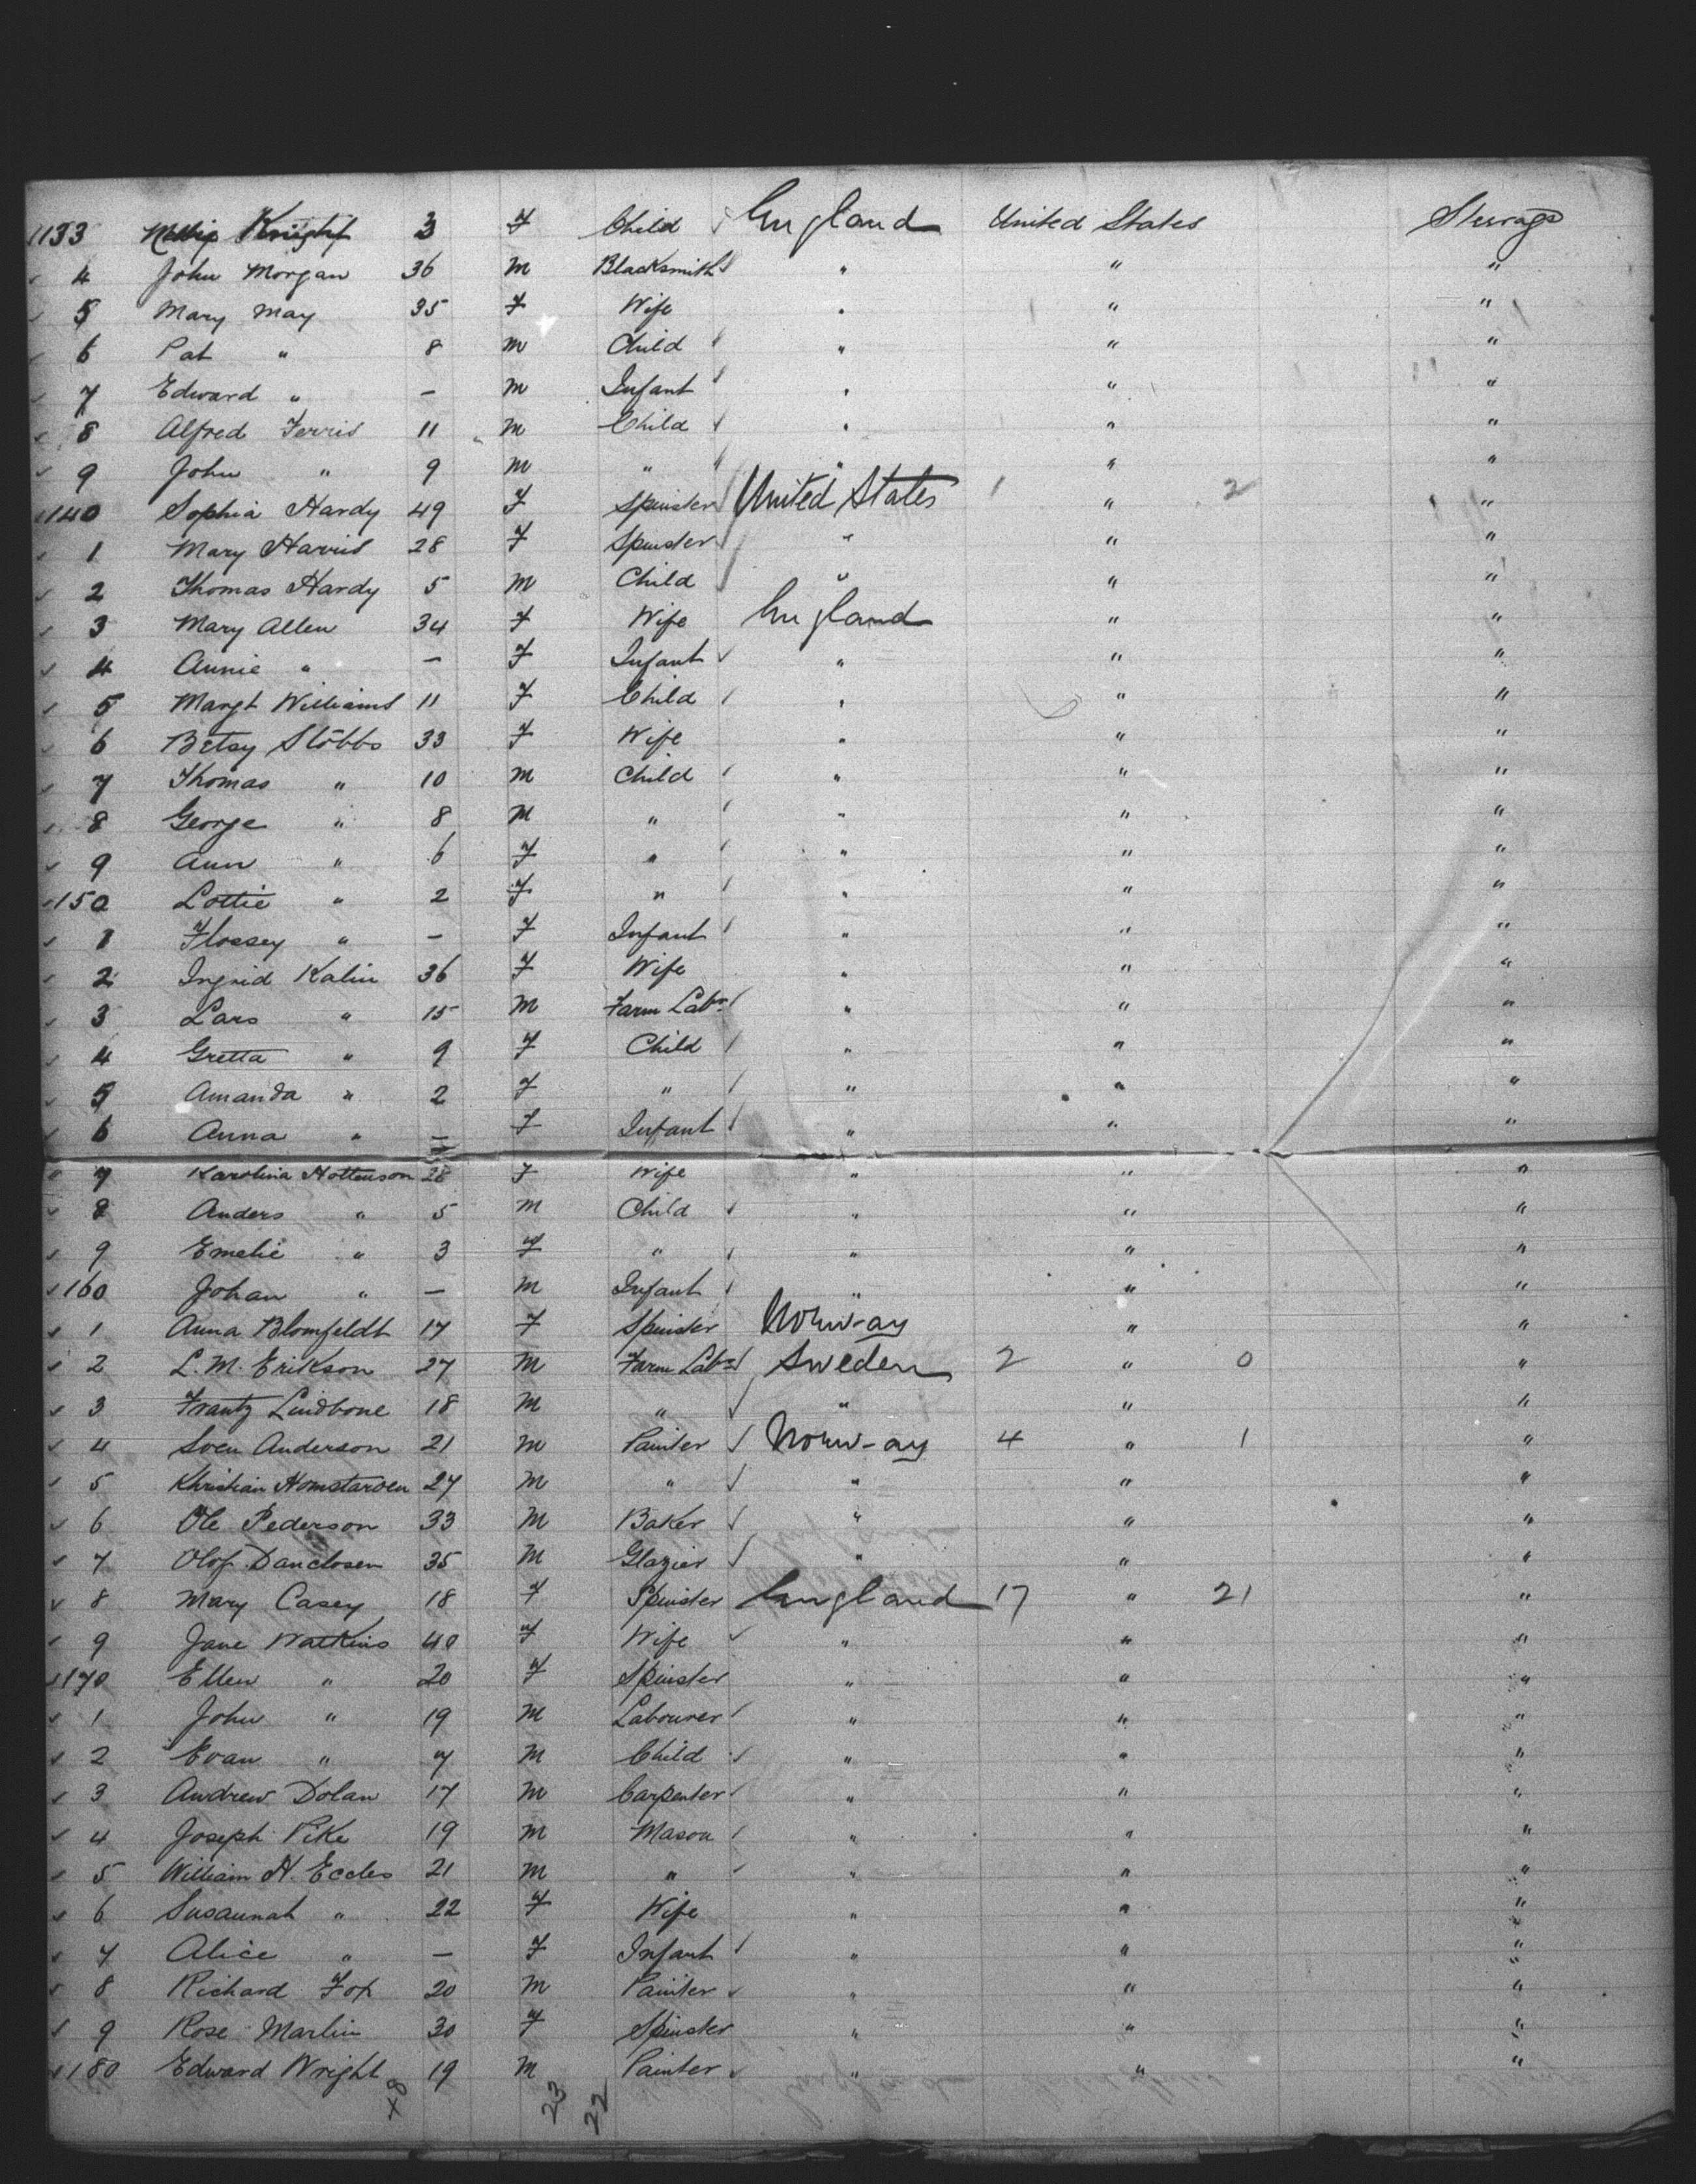 133 Knight 3 F Child England United States Steerage
4 John Morgan 36 M Blacksmith " " "
5 Mary May 35 F Wife " " "
6 Pat " 8 M Child " " "
7 Edward " — M Infant " " "
8 Alfred Ferris 11 M Child " " "
9 John " 9 M " " " "
140 Sophia Hardy 49 F Spinster United States 1 " 2 "
1 Mary Harris 28 F Spinster " " "
2 Thomas Hardy 5 M Child " " "
3 Mary Allen 34 F Wife England " "
4 Annie " — F Infant " " "
5 Margt Williams 11 F Child " " "
6 Betsy Stobbs 33 F Wife " " "
7 Thomas " 10 M Child " " "
8 George " 8 M " " " "
9 Ann " 6 F " " " "
150 Lottie " 2 F " " " "
1 Flossey " — F Infant " " "
2 Ingrid Kalin 36 F Wife " " "
3 Lars " 15 M Farm Labr " " "
4 Gretta " 9 F Child " " "
5 Amanda " 2 F " " " "
6 Anna " — F Infant " " "
7 Karolina Hottenson 28 F Wife " " "
8 Anders " 5 M Child " " "
9 Emelie " 3 F " " " "
160 Johan " — M Infant " " "
1 Anna Blomfeldt 17 F Spinster Norway " "
2 L. M. Erikson 27 M Farm Labr Sweden 2 " 0 "
3 Frantz Lindbone 18 M " " " "
4 Sven Anderson 21 M Painter Norway 4 " 1 "
5 Khristian 27 M " " " "
6 Ole Pederson 33 M Baker " " "
7 Olof Danclosen 35 M Glazier " " "
8 Mary Casey 18 F Spinster England 17 " 21 "
9 Jane Watkins 40 F Wife " " "
170 Ellen " 20 F Spinster " " "
1 John " 19 M Labourer " " "
2 Evan " 7 M Child " " "
3 Andrew Dolan 17 M Carpenter " " "
4 Joseph Pike 19 M Mason " " "
5 William H. Eccles 21 M " " " "
6 Susannah " 22 F Wife " " "
7 Alice " — F Infant " " "
8 Richard Fox 20 M Painter " " "
9 Rose Marlin 30 F Spinster " " "
180 Edward Wright 19 M Painter " " "
23 22